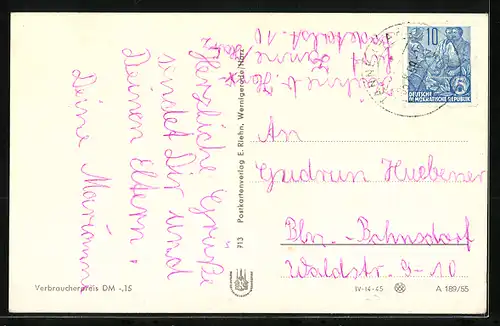 Herzliche Grüße
sendet Dir und
Deinen Eltern,
Deine Marianne
An
Gudrun Huebener
Bln.-Bohnsdorf
Waldstr. 9-10
10
DEUTSCHE
DEMOKRATISCHE REPUBLIK
5
713 Postkartenverlag E. Riehn, Wernigerode/Harz
Verbraucherpreis DM -,15
IV-14-45
A 189/55